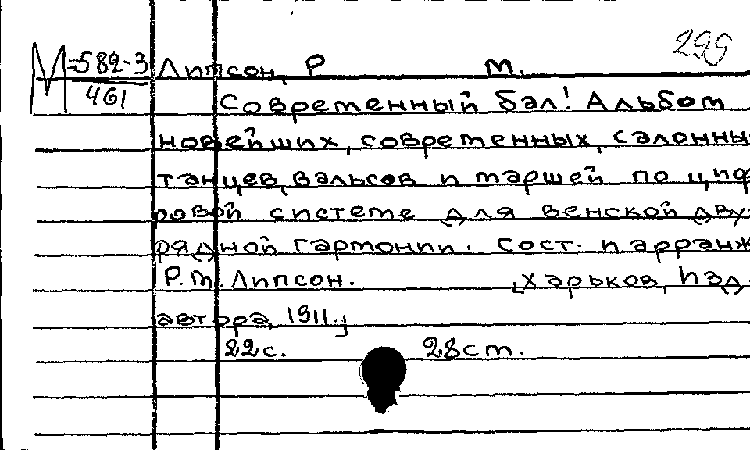 299
М-582-3 Липсон, Р М.
461
Современный бал! Альбом
новейших, современных, салонны
танцев, вальсов и маршей по циф
ровой системе для венской двух
рядной гармонии. Сост. и арранж
Р.М. Липсон. [Харьков, Изд.
автора, 1911.]
22с. 28см.